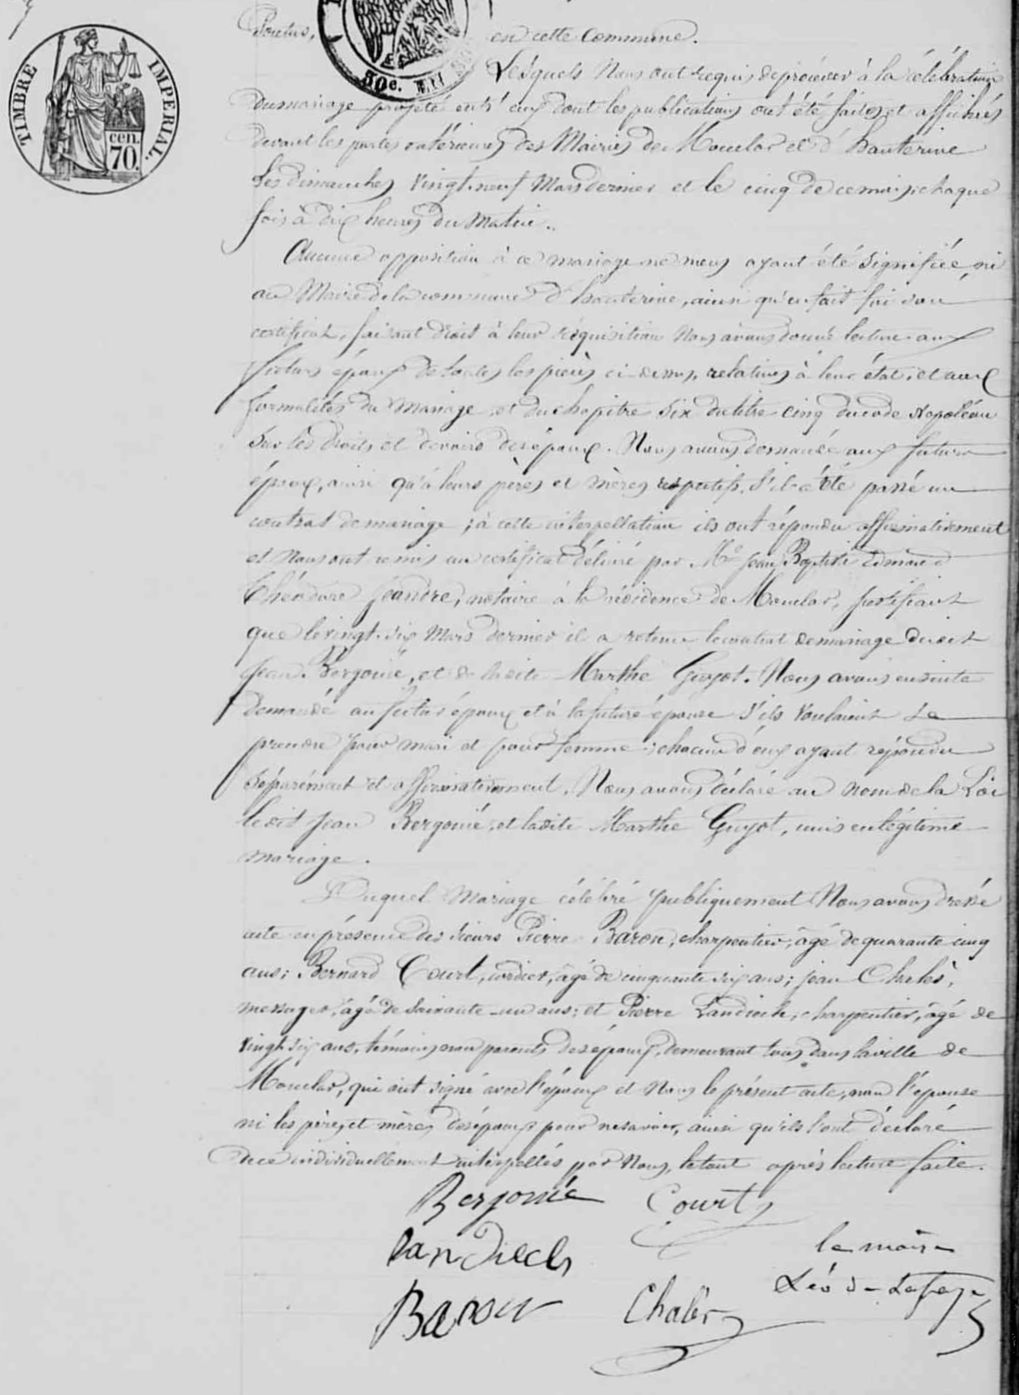 TIMBRE IMPERIAL.
cen. 70.
50c.
en cette Commune.
Lesquels Nous ont requis de procéder à la célébration
du mariage projeté entr'eux dont les publications ont été faites et affichées
devant les portes extérieures des Mairies de Monclar et d'hauterive
Les dimanches vingt-neuf Mars dernier et le cinq de ce mois, chaque
fois à dix heures du Matin.
Aucune opposition à ce mariage ne nous ayant été signifiée, ni
au Maire de la commune d'hauterive, ainsi qu'en fait foi son
certificat, faisant droit à leur réquisition Nous avons donné lecture aux
futurs époux de toutes les pièces ci-dessus, relatives à leur état, et aux
formalités du Mariage et du chapitre six du titre cinq du code Napoléon
Sur les droits et devoirs des époux. Nous avons demandé aux futurs
époux, ainsi qu'à leurs pères et mères respectifs, s'il a été passé un
contrat de mariage ; à cette interpellation ils ont répondu affirmativement
et Nous ont remis un certificat délivré par Me Jean Baptiste Edmond
Théodore Jeandre, notaire à la résidence de Monclar, justifiant
que le vingt-six Mars dernier il a retenu le contrat de mariage dudit
Jean Bergonié, et de ladite Marthe Guyot. Nous avons ensuite
demandé au futur époux et à la future épouse s'ils voulaient se
prendre pour mari et pour femme ; chacun d'eux ayant répondu
séparément et affirmativement, Nous avons déclaré au nom de la Loi
ledit Jean Bergonié, et ladite Marthe Guyot, unis en légitime
mariage.
Duquel Mariage célébré publiquement Nous avons dressé
acte en présence des sieurs Pierre Baron, charpentier, âgé de quarante cinq
ans ; Bernard Court, cordier, âgé de cinquante six ans ; Jean Chalès,
messager, âgé de soixante-un ans ; et Pierre Landiech, charpentier, âgé de
vingt-six ans, témoins non parents des époux, demeurant tous dans la ville de
Monclar, qui ont signé avec l'époux et Nous le présent acte, non l'épouse
ni les pères et mères des époux pour ne savoir, ainsi qu'ils l'ont déclaré
de ce individuellement interpellés par Nous, le tout après lecture faite.
Bergonié Court
Landiech le maire
Baron Chalès